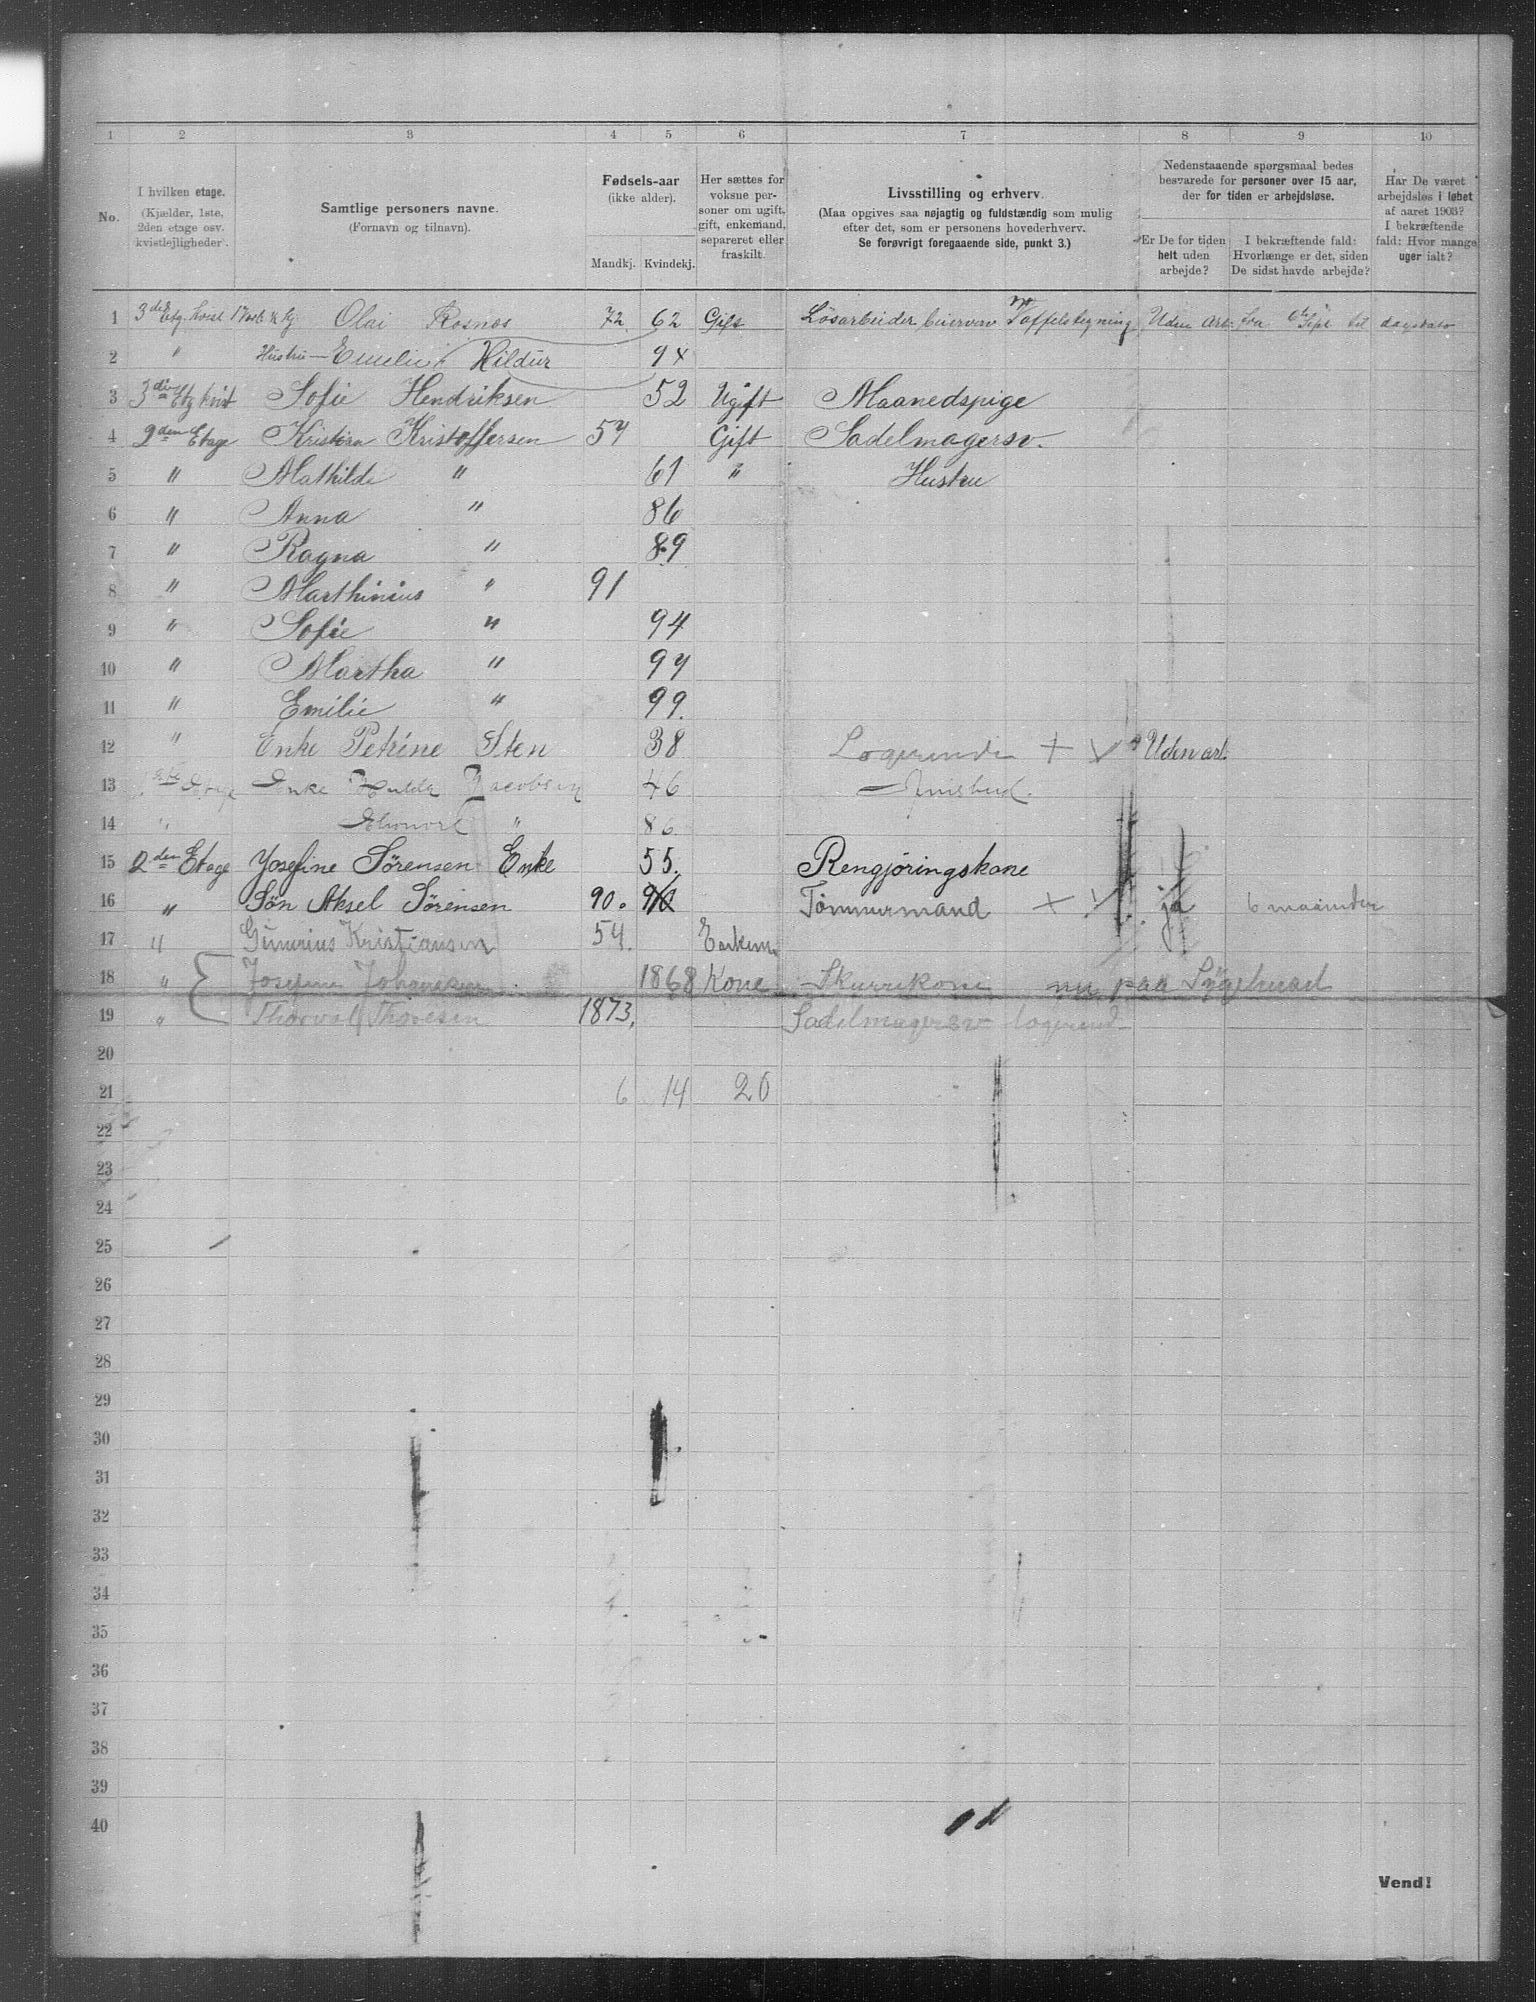 1 2 3 4 5 6 7 8 9 10
No.
I hvilken etage.
(Kjælder, 1ste,
2den etage osv.
kvistlejligheder).
Samtlige personers navne.
(Fornavn og tilnavn).
Fødsels-aar
(ikke alder).
Mandkj. Kvindekj.
Her sættes for
voksne per-
soner om ugift,
gift, enkemand,
separeret eller
fraskilt.
Livsstilling og erhverv.
(Maa opgives saa nøjagtig og fuldstændig som mulig
efter det, som er personens hovederhverv.
Se forøvrigt foregaaende side, punkt 3.)
Nedenstaaende spørgsmaal bedes
besvarede for personer over 15 aar,
der for tiden er arbejdsløse.
Er De for tiden
helt uden
arbejde?
I bekræftende fald:
Hvorlænge er det, siden
De sidst havde arbejde?
Har De været
arbejdsløs i løbet
af aaret 1903?
I bekræftende
fald: Hvor mange
uger ialt?
1 3die Etg. kvist Olai Rosnes 72 62 Gift Løsarbeider Uden arb. fra Sept til
2 " Hustru — Emelie Hildur 94
3 3die Etg kvist Sofie Hendriksen 52 Ugift Maanedspige
4 2den Etage Kristian Kristoffersen 57 Gift Sadelmagersv.
5 " Mathilde " 61 " Hustru
6 " Anna " 86
7 " Ragna " 89
8 " Marthinius " 91
9 " Sofie " 94
10 " Martha " 97
11 " Emilie " 99.
12 " Enke Petrine Sten 38 Logerende + V Uden arb.
13 Etage Enke Hulda Jacobsen 46
14 " " 86
15 2den Etage Josefine Sørensen Enke 55. Rengjøringskone
16 " Søn Aksel Sørensen 90. 90 Tømmermand + V ja 6 maaneder
17 " Gunerius Kristiansen 54. Enkem.
18 " Josefine Johansen 1868 Kone Skurekone nu paa Sygehuad
19 " Thorvald Thoresen 1873. Sadelmagersv logerend
20
21 6 14 20
22
23
24
25
26
27
28
29
30
31
32
33
34
35
36
37
38
39
40
Vend!